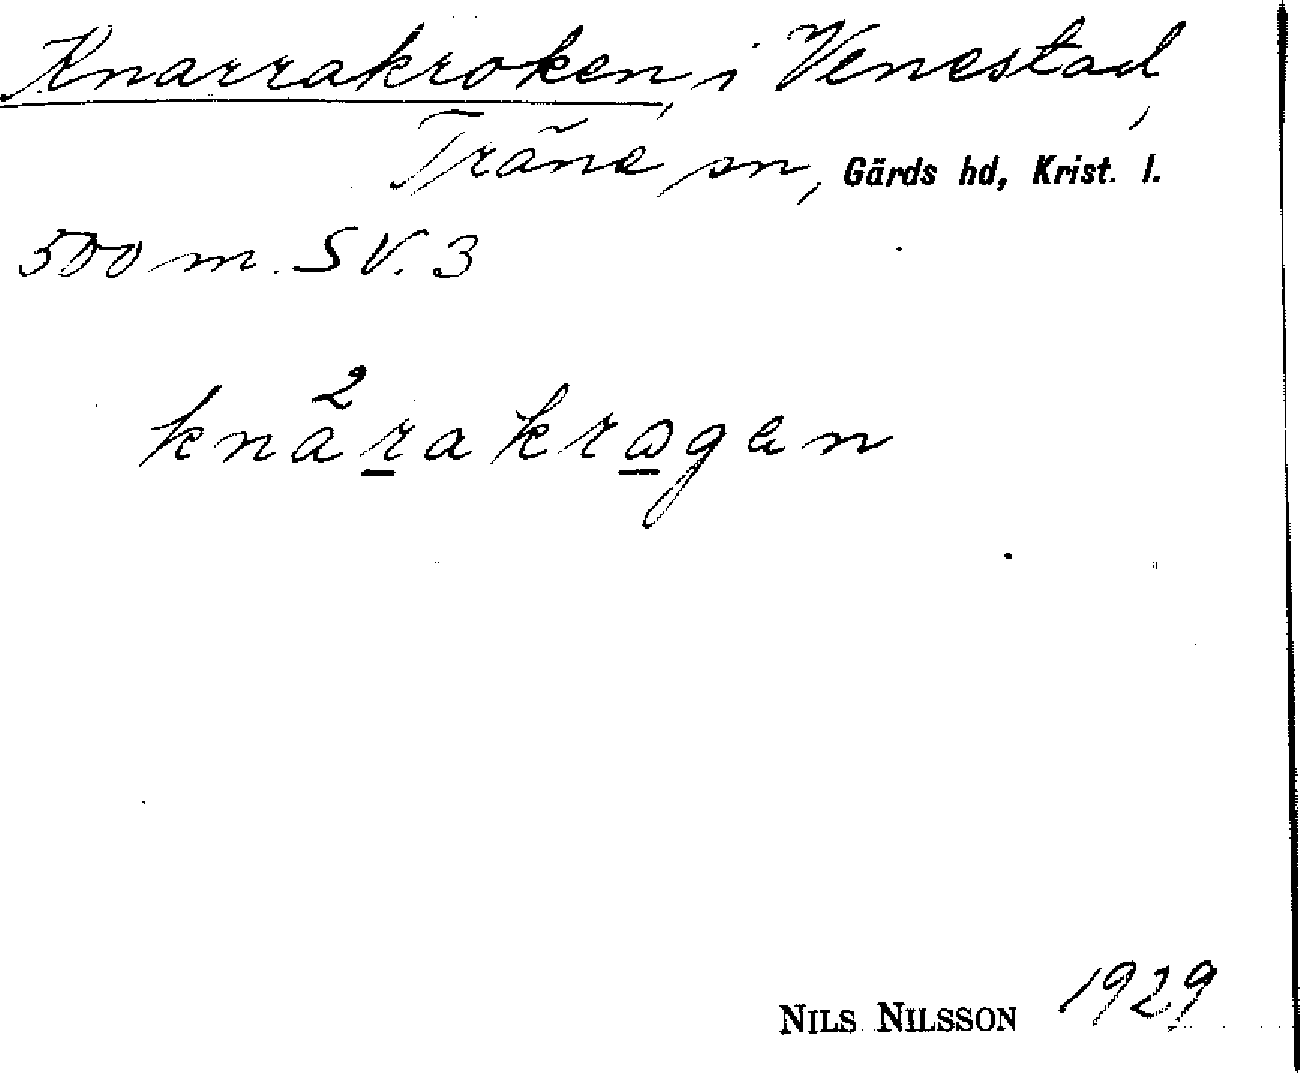 Knarrakroken, i Venestad,
Träne sn, Gärds hd, Krist. l.
500 m. SV. 3
kna²rakrogen
NILS NILSSON 1929